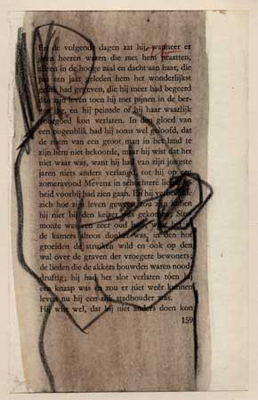 En de volgende dagen zat hij, wanneer er
geen heeren waren die met hem praatten,
alleen in de hooge zaal en dacht aan haar, die
jaren geleden hem het wonderlijkst
had gegeven, die hij meer had begeerd
dan zijn leven toen hij met pijnen in de
en hij peinsde of hij haar waarlijk
voorgoed kon verlaten. In den gloed van
een oogenblik had hij soms wel geloofd, dat
de roem van een groot man in het land te
zijn hem niet bekoorde, maar hij wist dat het
niet waar was, want hij had van zijn jongste
jaren niets anders verlangd tot hij op een
zomeravond Mevena in schitterende
heid voorbij had zien gaan. En hij
zich hoe zijn leven geweest zou zijn
hij niet bij den keizer was gekomen. Zijn
monte was een zeer oud
de kamers altoos donker was, in den hof
groeiden de struiken wild en ook op den
wal over de graven der vroegere bewoners;
de lieden die de akkers bouwden waren nood
druftig; hij had het slot verlaten toen hij
een knaap was en zou er niet weer kunnen
leven nu hij een stadhouder was.
Hij wist wel, dat hij niet anders doen kon
159